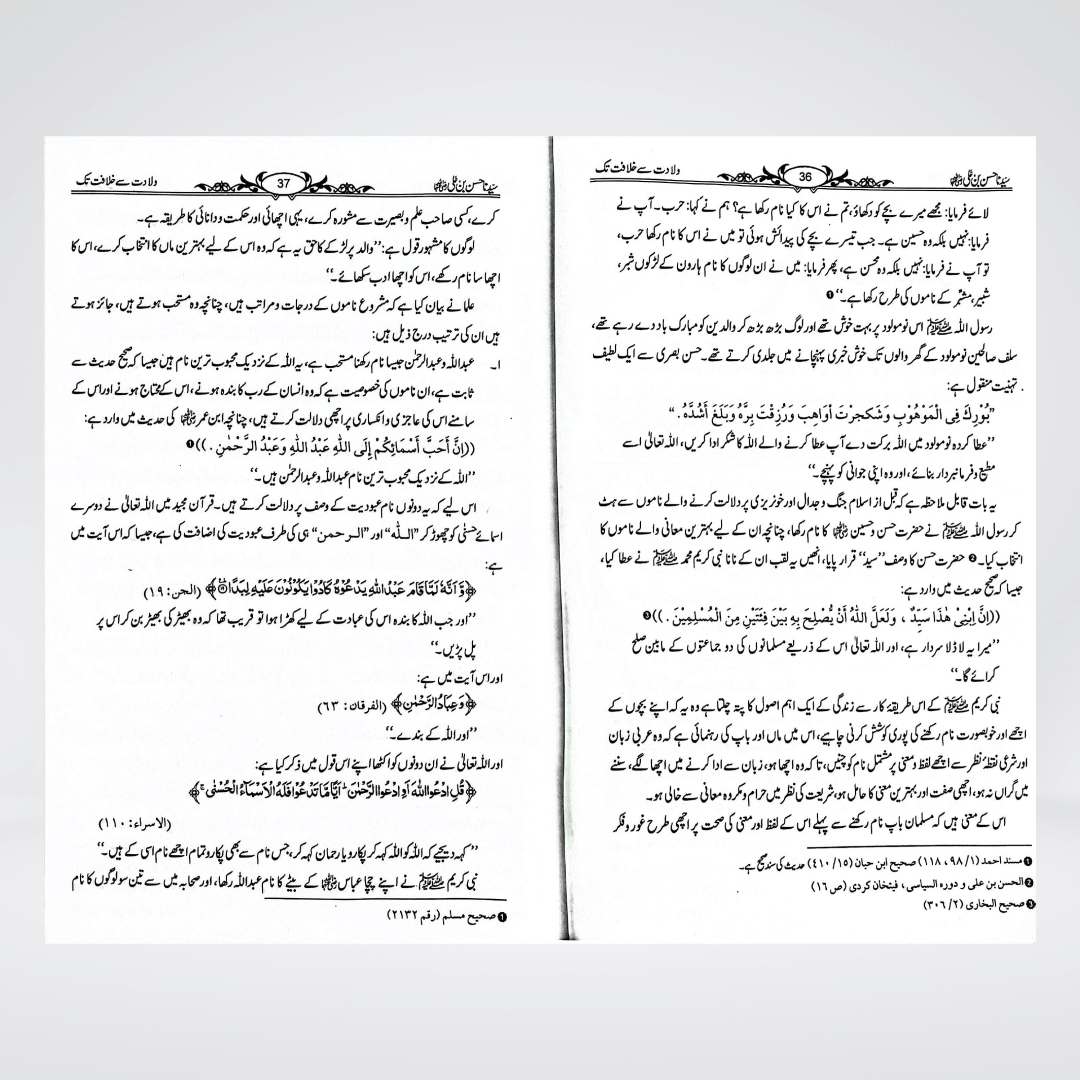 سیدنا حسن بن علی رضی اللہ عنہما 36 ولادت سے خلافت تک
لائے فرمایا: مجھے میرے بچے کو دکھاؤ، تم نے اس کا کیا نام رکھا ہے؟ ہم نے کہا: حرب۔ آپ نے
فرمایا: نہیں بلکہ وہ حسین ہے۔ جب تیسرے بچے کی پیدائش ہوئی تو میں نے اس کا نام رکھا حرب،
تو آپ نے فرمایا: نہیں بلکہ وہ محسن ہے، پھر فرمایا: میں نے ان لوگوں کا نام ہارون کے لڑکوں شبر،
شبیر، مشبّر کے ناموں کی طرح رکھا ہے۔‘‘ ❶
رسول اللہ ﷺ اس نومولود پر بہت خوش تھے اور لوگ بڑھ بڑھ کر والدین کو مبارک باد دے رہے تھے،
سلف صالحین نومولود کے گھر والوں تک خوش خبری پہنچانے میں جلدی کرتے تھے۔ حسن بصری سے ایک لطیف
تہنیت منقول ہے:
”بُوْرِكَ فِی الْمَوْهُوْبِ وَشَكَرْتَ الْوَاهِبَ وَرُزِقْتَ بِرَّهُ وَبَلَغَ أَشُدَّهُ.“
’’عطا کردہ نومولود میں اللہ برکت دے آپ عطا کرنے والے اللہ کا شکر ادا کریں، اللہ تعالیٰ اسے
مطیع و فرمانبردار بنائے، اور وہ اپنی جوانی کو پہنچے۔‘‘
یہ بات قابل ملاحظہ ہے کہ قبل از اسلام جنگ و جدال اور خونریزی پر دلالت کرنے والے ناموں سے ہٹ
کر رسول اللہ ﷺ نے حضرت حسن و حسین رضی اللہ عنہما کا نام رکھا، چنانچہ ان کے لیے بہترین معانی والے ناموں کا
انتخاب کیا۔ ❷ حضرت حسن کا وصف ’’سید‘‘ قرار پایا، انھیں یہ لقب ان کے نانا نبی کریم محمد ﷺ نے عطا کیا،
جیسا کہ صحیح حدیث میں وارد ہے:
((إِنَّ ابْنِیْ هٰذَا سَيِّدٌ ، وَلَعَلَّ اللّٰهُ أَنْ يُّصْلِحَ بِهِ بَيْنَ فِئَتَيْنِ مِنَ الْمُسْلِمِيْنَ .)) ❸
’’میرا یہ لاڈلا سردار ہے، اور اللہ تعالیٰ اس کے ذریعے مسلمانوں کی دو جماعتوں کے مابین صلح
کرائے گا۔‘‘
نبی کریم ﷺ کے اس طریقۂ کار سے زندگی کے ایک اہم اصول کا پتہ چلتا ہے وہ یہ کہ اپنے بچوں کے
اچھے اور خوبصورت نام رکھنے کی پوری کوشش کرنی چاہیے، اس میں ماں اور باپ کی رہنمائی ہے کہ وہ عربی زبان
اور شرعی نقطۂ نظر سے اچھے لفظ و معنی پر مشتمل نام کو چنیں، تاکہ وہ اچھا ہو، زبان سے ادا کرنے میں اچھا لگے، سننے
میں گراں نہ ہو، اچھی صفت اور بہترین معنی کا حامل ہو، شریعت کی نظر میں حرام و مکروہ معانی سے خالی ہو۔
اس کے معنی ہیں کہ مسلمان باپ نام رکھنے سے پہلے اس کے لفظ اور معنی کی صحت پر اچھی طرح غور و فکر
❶ مسند احمد (۱/ ۹۸، ۱۱۸) صحیح ابن حبان (۱۵/ ۴۱۰) حدیث کی سند صحیح ہے۔
❷ الحسن بن علی و دوره السیاسی ، فیتخان کردی (ص ۱۶)
❸ صحیح البخاری (۲/ ۳۰۶)
سیدنا حسن بن علی رضی اللہ عنہما 37 ولادت سے خلافت تک
کرے، کسی صاحب علم و بصیرت سے مشورہ کرے، یہی اچھائی اور حکمت و دانائی کا طریقہ ہے۔
لوگوں کا مشہور قول ہے: ’’والد پر لڑکے کا حق یہ ہے کہ وہ اس کے لیے بہترین ماں کا انتخاب کرے، اس کا
اچھا سا نام رکھے، اس کو اچھا ادب سکھائے۔‘‘
علما نے بیان کیا ہے کہ مشروع ناموں کے درجات و مراتب ہیں، چنانچہ وہ مستحب ہوتے ہیں، جائز ہوتے
ہیں ان کی ترتیب درج ذیل ہیں:
۱۔ عبداللہ و عبدالرحمٰن جیسا نام رکھنا مستحب ہے، یہ اللہ کے نزدیک محبوب ترین نام ہیں جیسا کہ صحیح حدیث سے
ثابت ہے، ان ناموں کی خصوصیت ہے کہ وہ انسان کے رب کا بندہ ہونے، اس کے محتاج ہونے اور اس کے
سامنے اس کی عاجزی و انکساری پر اچھی دلالت کرتے ہیں، چنانچہ ابن عمر رضی اللہ عنہما کی حدیث میں وارد ہے:
((إِنَّ أَحَبَّ أَسْمَائِكُمْ إِلَى اللّٰهِ عَبْدُ اللّٰهِ وَعَبْدُ الرَّحْمٰنِ .)) ❶
’’اللہ کے نزدیک محبوب ترین نام عبداللہ و عبدالرحمٰن ہیں۔‘‘
اس لیے کہ یہ دونوں نام عبودیت کے وصف پر دلالت کرتے ہیں۔ قرآن مجید میں اللہ تعالیٰ نے دوسرے
اسمائے حسنٰی کو چھوڑ کر ’’اللّٰه‘‘ اور ’’الرحمن‘‘ ہی کی طرف عبودیت کی اضافت کی ہے، جیسا کہ اس آیت میں
ہے:
﴿وَّ اَنَّهٗ لَمَّا قَامَ عَبْدُ اللّٰهِ يَدْعُوْهُ كَادُوْا يَكُوْنُوْنَ عَلَيْهِ لِبَدًا﴾ (الجن: ۱۹)
’’اور جب اللہ کا بندہ اس کی عبادت کے لیے کھڑا ہوا تو قریب تھا کہ وہ بھیڑ کی بھیڑ بن کر اس پر
پل پڑیں۔‘‘
اور اس آیت میں ہے:
﴿وَعِبَادُ الرَّحْمٰنِ﴾ (الفرقان: ۶۳)
’’اور اللہ کے بندے۔‘‘
اور اللہ تعالیٰ نے ان دونوں کو اکٹھا اپنے اس قول میں ذکر کیا ہے:
﴿قُلِ ادْعُوا اللّٰهَ اَوِ ادْعُوا الرَّحْمٰنَ ؕ اَيًّا مَّا تَدْعُوْا فَلَهُ الْاَسْمَآءُ الْحُسْنٰى ۚ﴾
(الاسراء: ۱۱۰)
’’کہہ دیجیے کہ اللہ کو اللہ کہہ کر پکارو یا رحمان کہہ کر، جس نام سے بھی پکارو تمام اچھے نام اسی کے ہیں۔‘‘
نبی کریم ﷺ نے اپنے چچا عباس رضی اللہ عنہ کے بیٹے کا نام عبداللہ رکھا، اور صحابہ میں سے تین سو لوگوں کا نام
❶ صحیح مسلم (رقم ۲۱۳۲)